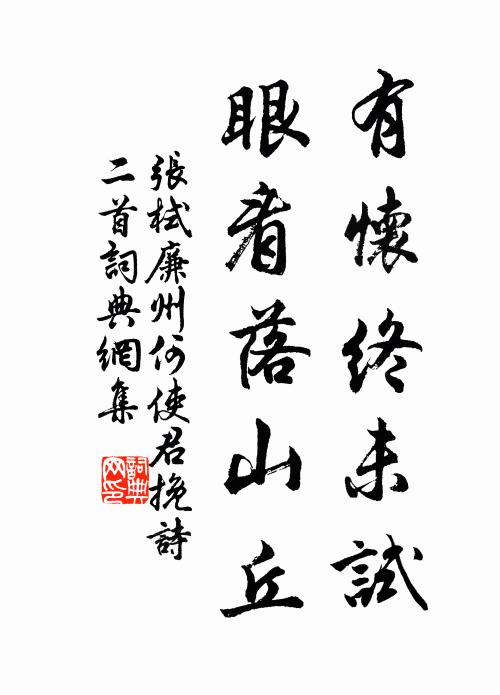 有懷終未試
眼看落山丘
張栻廉州何使君挽詩
二首詞典網集
詞典
网印